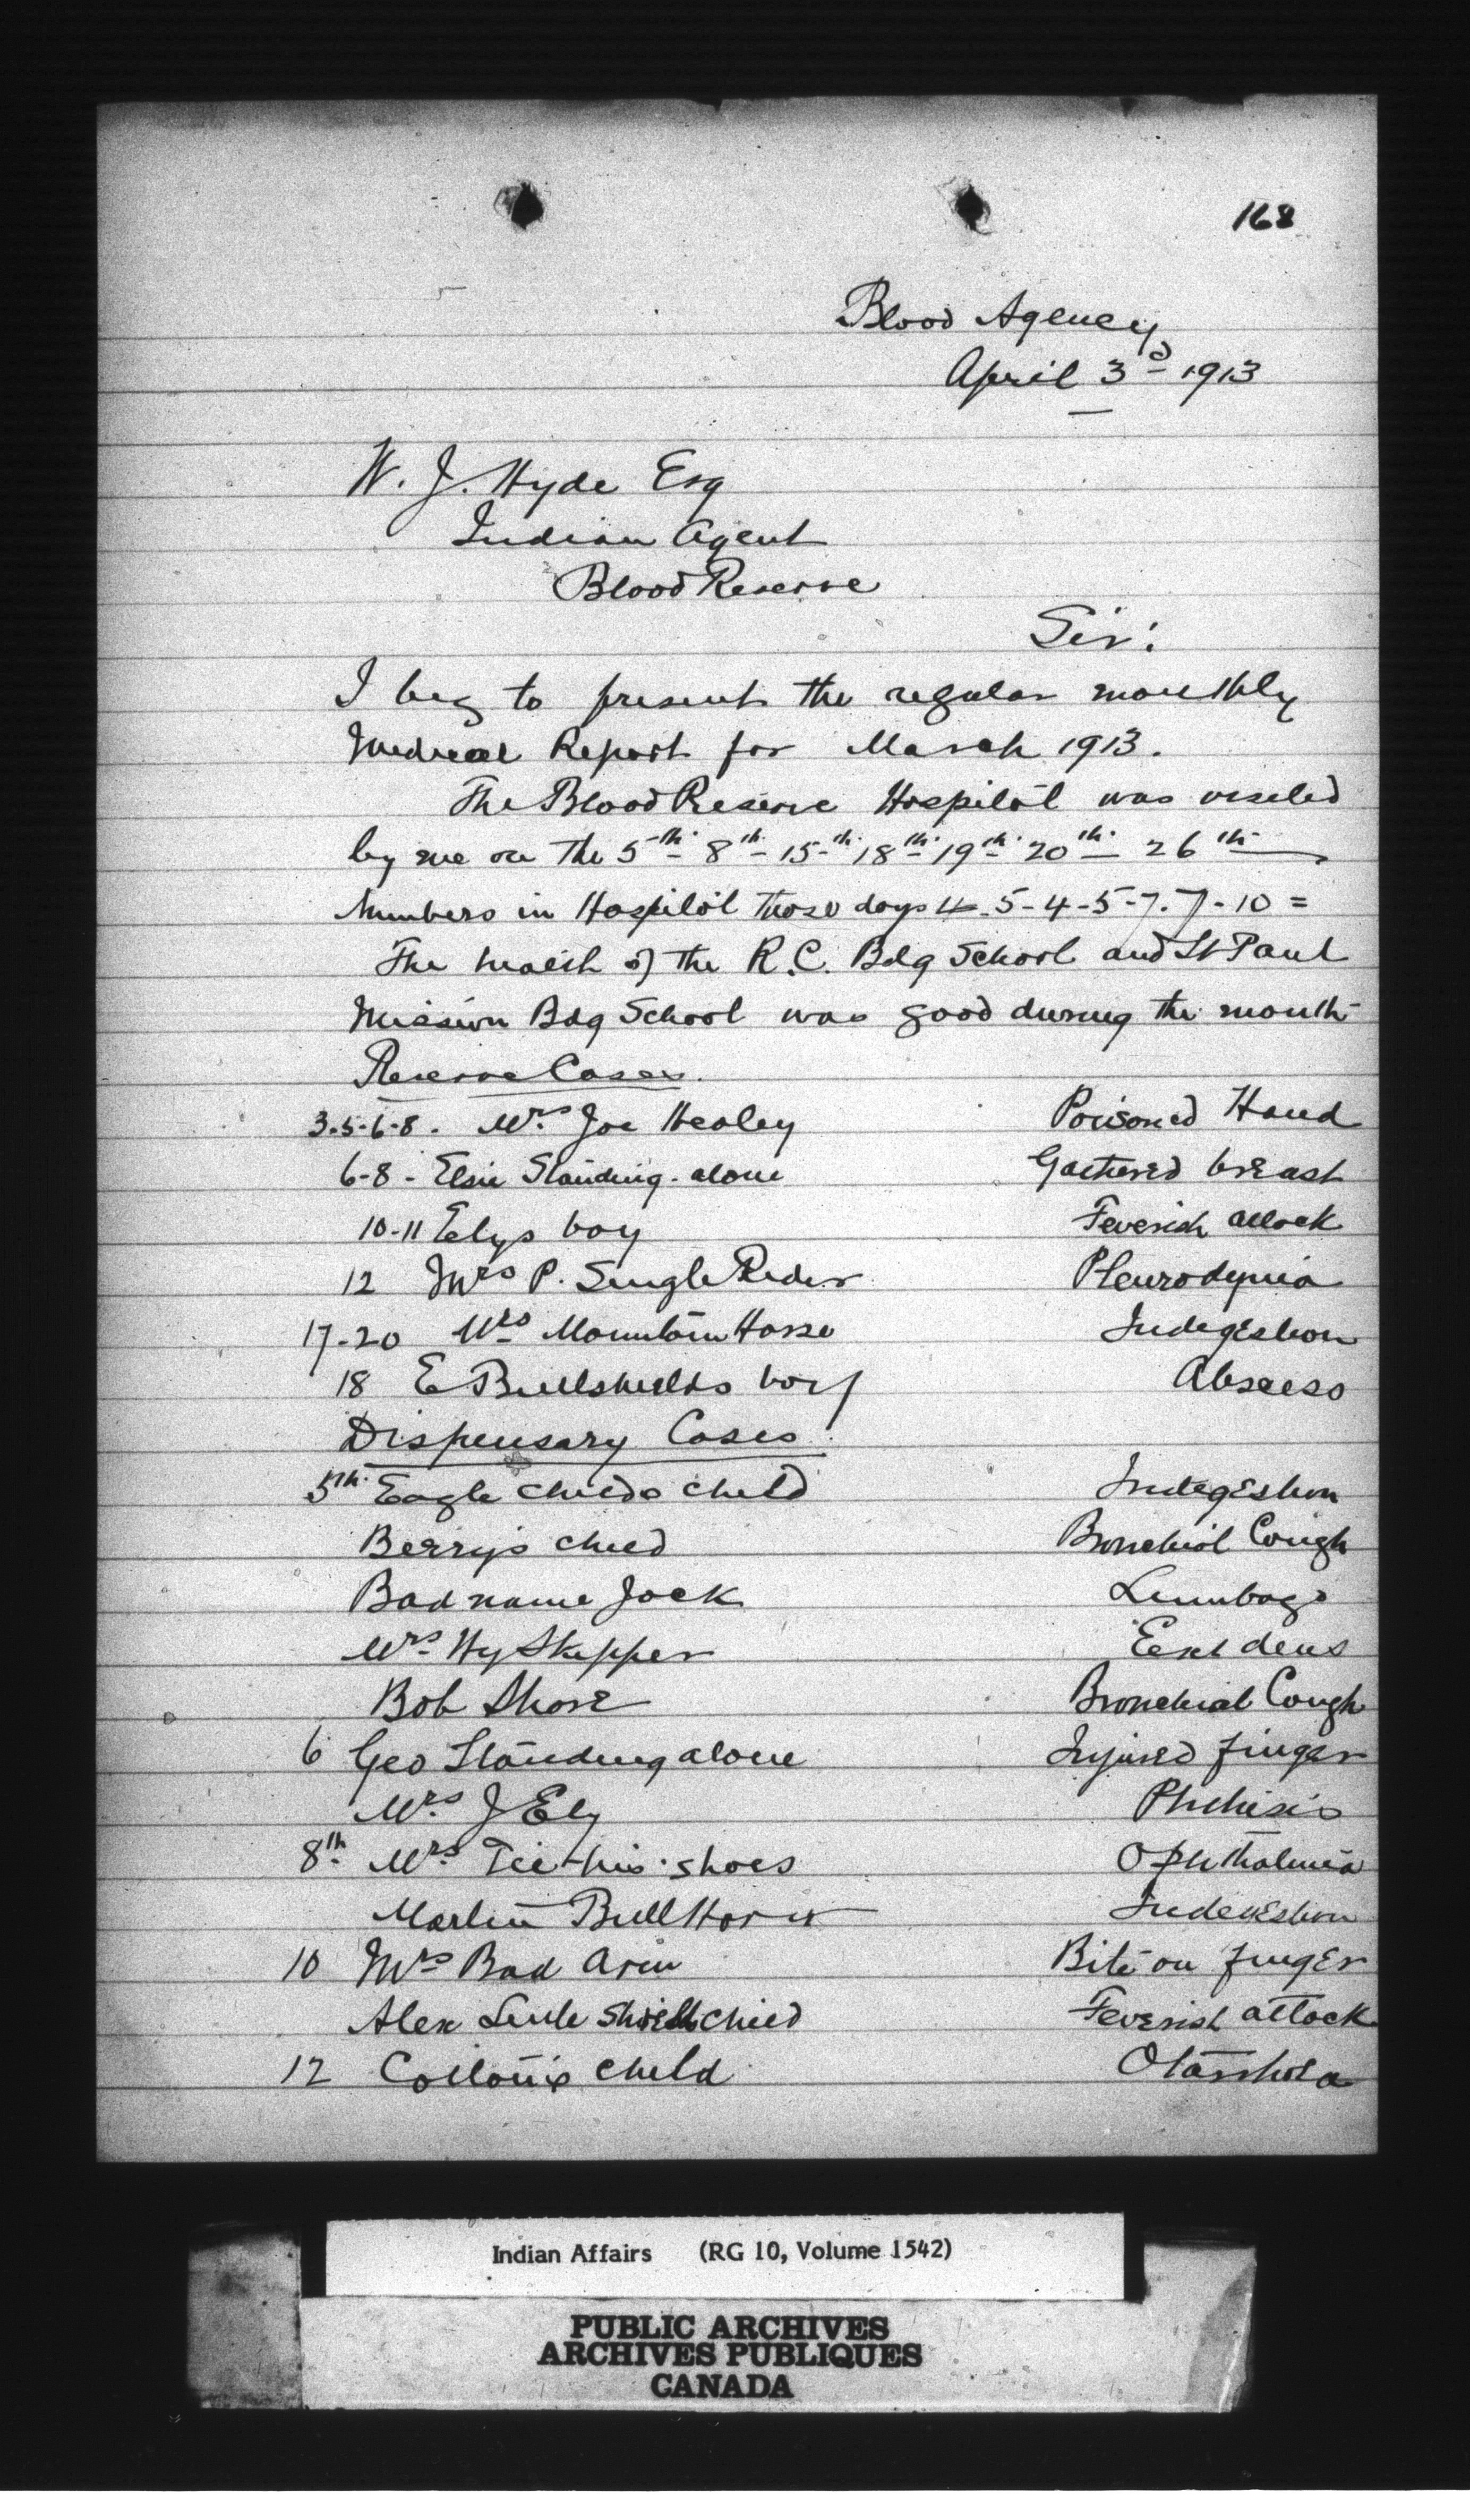 168
Blood Agency
April 3rd 1913
W. J. Hyde Esq
Indian Agent
Blood Reserve
Sir:
I beg to present the regular monthly
Medical Report for March 1913.
The Blood Reserve Hospital was visited
by me on the 5th 8th 15th 18th 19th 20th 26th
Numbers in Hospital those days 4-5-4-5-7-7-10 =
The health of the R.C. Bdg School and St Paul
Mission Bdg School was good during the month
Reserve Cases.
3-5-6-8. Mrs Joe Healey Poisoned Hand
6-8 - Elsie Standing-alone Gathered breast
10-11 Elys boy Feverish attack
12 Mrs P. Single Rider Pleurodynia
17-20 Mrs Mountain Horse Indigestion
18 E Bullshields boy Abscess
Dispensary Cases
5th Eagle childs child Indigestion
Berrys child Bronchial Cough
Bad name Jack Lumbago
Mrs Hy Skipper Ext dens
Bob Shore Bronchial Cough
6 Geo Standing alone Injured finger
Mrs J Ely Phthisis
8th Mrs Tie-his-shoes Ophthalmia
Martin Bull Horn Indigestion
10 Mrs Bad Arm Bite on finger
Alex Little Shield child Feverish attack
12 child Otorrhoea
Indian Affairs (RG 10, Volume 1542)
PUBLIC ARCHIVES
ARCHIVES PUBLIQUES
CANADA